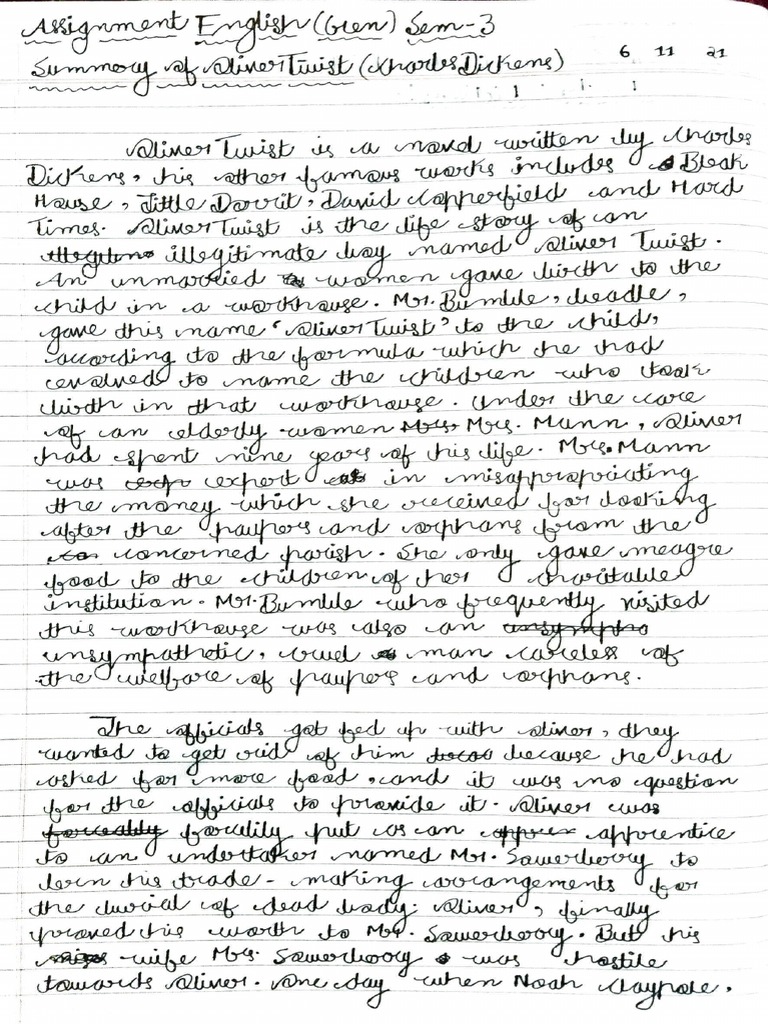 Assignment English (Gen) Sem-3
Summery of Oliver Twist (Charles Dickens) 6 11 21
Oliver Twist is a novel written by Charles
Dickens, his other famous works includes Bleak
House, Little Dorrit, David Copperfield and Hard
Times. Oliver Twist is the life story of an
illegitimate boy named Oliver Twist.
An unmarried women gave birth to the
child in a workhouse. Mr. Bumble, beadle,
gave this name 'Oliver Twist' to the child,
according to the formula which he had
evolved to name the children who took
birth in that workhouse. Under the care
of an elderly women Mrs. Mann, Oliver
had spent nine years of his life. Mrs. Mann
was expert in misappropriating
the money which she received for looking
after the paupers and orphans from the
concerned parish. She only gave meagre
food to the children of her charitable
institution. Mr. Bumble who frequently visited
this workhouse was also an
unsympathetic, cruel man careless of
the welfare of paupers and orphans.
The officials got fed up with Oliver, they
wanted to get rid of him because he had
asked for more food, and it was no question
for the officials to provide it. Oliver was
forcelily put as an apprentice
to an undertaker named Mr. Sowerberry to
lern his trade - making arrangements for
the burial of dead body. Oliver, finally
proved his worth to Mr. Sowerberry. But his
wife Mrs. Sowerberry was hostile
towards Oliver. One day when Noah Claypole,